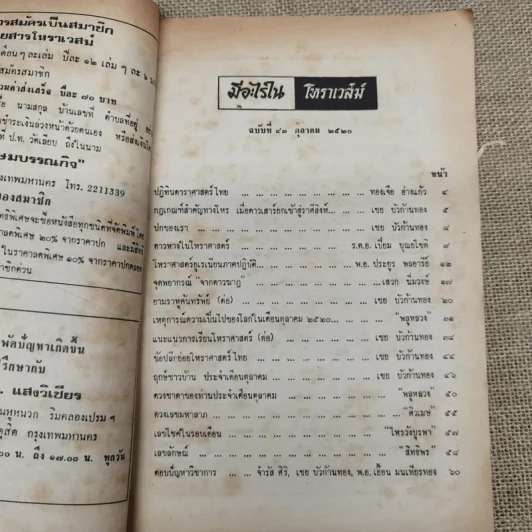 ารสมัครเป็นสมาชิก
ยสารโหราเวสม์
เดือนๆ ละเล่ม ปีละ ๑๒ เล่ม ๆ ละ ๖
สมัครสมาชิก
รวมค่าส่งเสร็จ ปีละ ๗๐ บาท
ชื่อ นามสกุล บ้านเลขที่ ตำบลที่อยู่
ชำระเงินล่วงหน้าด้วยตนเอง หรือส่งเงิน
ที่ ป.ท. วัดเลียบ ถึงในนาม
ษมบรรณกิจ"
งเทพมหานคร โทร. 2211339
ของสมาชิก
ทธิพิเศษจะซื้อหนังสือทุกชนิดที่จัดพิมพ์โดย
ราคาพิเศษ ๒๐% จากราคาปก
ในราคาลดพิเศษ ๑๐% จากราคาปกตลอด
าชิกด้วย
พัดปัญหาเกิดขึ้น
รึกษากับ
. แสงวิเชียร
นมหูหนวก ริมคลองเปรมฯ
ดุสิต กรุงเทพมหานคร
.๐๐ น. ถึง ๑๗.๐๐ น. ทุกวัน
มีอะไรใน โหราเวสม์
ฉบับที่ ๔๓ ตุลาคม ๒๕๒๐
หน้า
ปฏิทินดาราศาสตร์ไทย ... ... ... ... ... ... ... ทองเจือ อ่างแก้ว ๔
กฎเกณฑ์สำคัญทางโหร เมื่อดาวเสาร์ยกเข้าสู่ราศีสิงห์... ... ... เชย บัวก้านทอง ๕
ปกของเรา ... ... ... ... ... ... ... ... ... เชย บัวก้านทอง ๘
ดาวหางในโหราศาสตร์ ... ... ... ... ... ร.ต.อ. เปี่ยม บุณยโชติ ๙
โหราศาสตร์ยูเรเนียนภาคปฏิบัติ... ... ... ... ... พ.อ. ประยูร พลอารีย์ ๑๒
จุดพยากรณ์ จากดาวนาฎ ... ... ... ... ... ... ...เสวก นิ่มวงษ์ ๑๗
ยามราหูคันทรัพย์ (ต่อ) ... ... ... ... ... ... ... เชย บัวก้านทอง ๒๐
เหตุการณ์ความเป็นไปของโลกในเดือนตุลาคม ๒๕๒๐... ... ... "พลูหลวง" ๓๑
แนะแนวการเรียนโหราศาสตร์ (ต่อ) ... ... ... ... ... เชย บัวก้านทอง ๓๘
ข้อปลีกย่อยโหราศาสตร์ไทย ... ... ... ... ... ... เชย บัวก้านทอง ๔๔
ฤกษ์ชาวบ้าน ประจำเดือนตุลาคม ... ... ... ... ... เชย บัวก้านทอง ๔๖
ดวงชาตาของท่านประจำเดือนตุลาคม ... ... ... ... ... "พลูหลวง" ๕๐
ดวงเลขมหาลาภ ... ... ... ... ... ... ... ... "ศิวเมษ" ๕๕
เลขไขศัพท์ในรอบเดือน ... ... ... ... ... ... ... "โหรวังบูรพา" ๕๗
เลขลักษณ์ ... ... ... ... ... ... ... ... "สิทธิพร" ๕๘
ตอบปัญหาวิชาการ ... ... จำรัส ศิริ, เชย บัวก้านทอง, พ.อ. เอื้อน มนเทียรทอง ๖๐